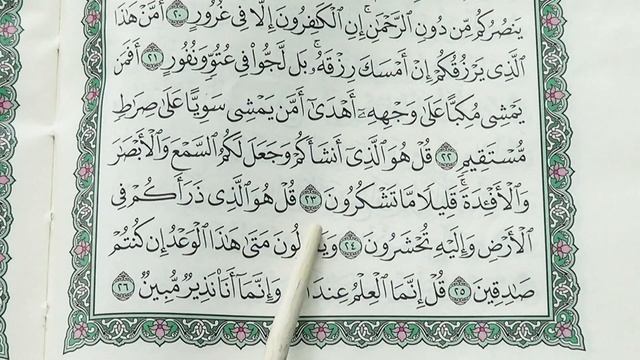 يَنصُرُكُم مِّن دُونِ ٱلرَّحْمَٰنِ ۚ إِنِ ٱلْكَٰفِرُونَ إِلَّا فِى غُرُورٍ ٢٠ أَمَّنْ هَٰذَا
ٱلَّذِى يَرْزُقُكُمْ إِنْ أَمْسَكَ رِزْقَهُۥ ۚ بَل لَّجُّوا۟ فِى عُتُوٍّ وَنُفُورٍ ٢١ أَفَمَن
يَمْشِى مُكِبًّا عَلَىٰ وَجْهِهِۦٓ أَهْدَىٰٓ أَمَّن يَمْشِى سَوِيًّا عَلَىٰ صِرَٰطٍ
مُّسْتَقِيمٍ ٢٢ قُلْ هُوَ ٱلَّذِىٓ أَنشَأَكُمْ وَجَعَلَ لَكُمُ ٱلسَّمْعَ وَٱلْأَبْصَٰرَ
وَٱلْأَفْـِٔدَةَ ۖ قَلِيلًا مَّا تَشْكُرُونَ ٢٣ قُلْ هُوَ ٱلَّذِى ذَرَأَكُمْ فِى
ٱلْأَرْضِ وَإِلَيْهِ تُحْشَرُونَ ٢٤ مَتَىٰ هَٰذَا ٱلْوَعْدُ إِن كُنتُمْ
صَٰدِقِينَ ٢٥ قُلْ إِنَّمَا ٱلْعِلْمُ عِندَ وَإِنَّمَآ أَنَا۠ نَذِيرٌ مُّبِينٌ ٢٦